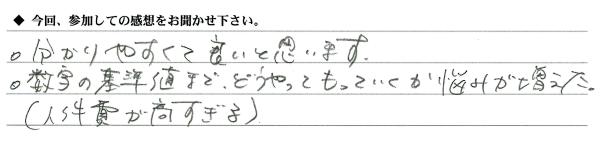 ◆ 今回、参加しての感想をお聞かせ下さい。
○ 分かりやすくて良いと思います.
○ 数字の基準値まで、どうやってもっていくか悩みが増えた。
(人件費が高すぎる)